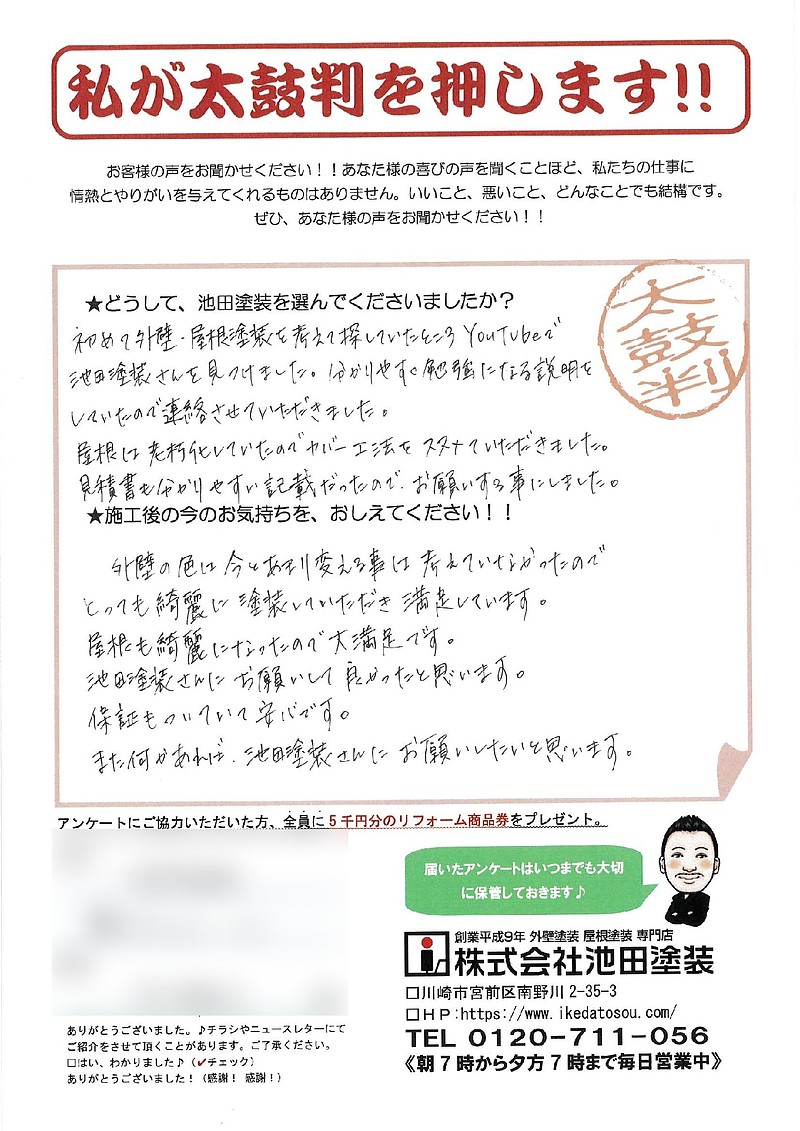 私が太鼓判を押します!!
お客様の声をお聞かせください！！あなた様の喜びの声を聞くことほど、私たちの仕事に
情熱とやりがいを与えてくれるものはありません。いいこと、悪いこと、どんなことでも結構です。
ぜひ、あなた様の声をお聞かせください！！
太鼓判
★どうして、池田塗装を選んでくださいましたか？
初めて外壁・屋根塗装を考えて探していたところYouTubeで
池田塗装さんを見つけました。分かりやすく勉強になる説明を
していたので連絡させていただきました。
屋根は老朽化していたのでカバー工法をススメていただきました。
見積書も分かりやすい記載だったので、お願いする事にしました。
★施工後の今のお気持ちを、おしえてください！！
外壁の色は今とあまり変える事は考えていなかったので
とっても綺麗に塗装していただき満足しています。
屋根も綺麗になったので大満足です。
池田塗装さんにお願いして良かったと思います。
保証もついていて安心です。
また何かあれば、池田塗装さんにお願いしたいと思います。
アンケートにご協力いただいた方、全員に５千円分のリフォーム商品券をプレゼント。
届いたアンケートはいつまでも大切
に保管しておきます♪
創業平成９年 外壁塗装 屋根塗装 専門店
株式会社池田塗装
□川崎市宮前区南野川 2-35-3
□ＨＰ:https://www.ikedatosou.com/
TEL 0120-711-056
《朝７時から夕方７時まで毎日営業中》
ありがとうございました。♪チラシやニュースレターにて
ご紹介をさせて頂くことがあります。ご了承ください。
□はい、わかりました♪（✓チェック）
ありがとうございました！（感謝！ 感謝！）